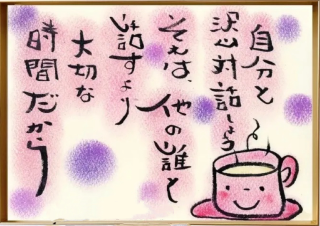 自分と
沢山対話しよう
それは、他の誰と
話すより
大切な
時間だから